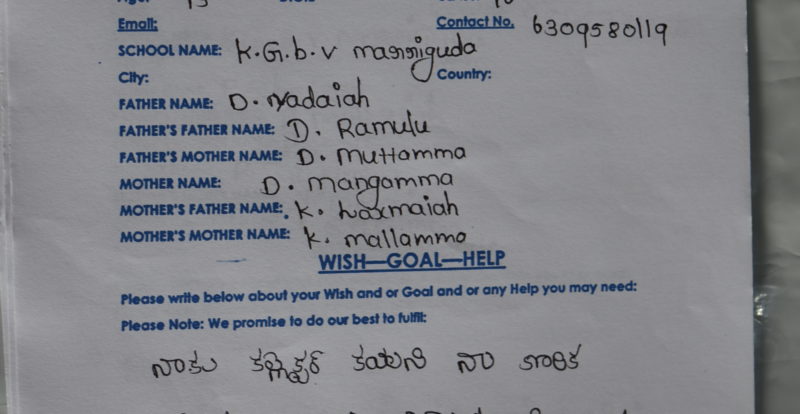 Email: Contact No. 6309580119
SCHOOL NAME: K.G.b.v marriguda
City: Country:
FATHER NAME: D. Yadaiah
FATHER'S FATHER NAME: D. Ramulu
FATHER'S MOTHER NAME: D. Muttamma
MOTHER NAME: D. mangamma
MOTHER'S FATHER NAME: K. Laxmaiah
MOTHER'S MOTHER NAME: K. mallamma
WISH—GOAL—HELP
Please write below about your Wish and or Goal and or any Help you may need:
Please Note: We promise to do our best to fulfil:
నాకు కలెక్టర్ కావాలని నా కోరిక